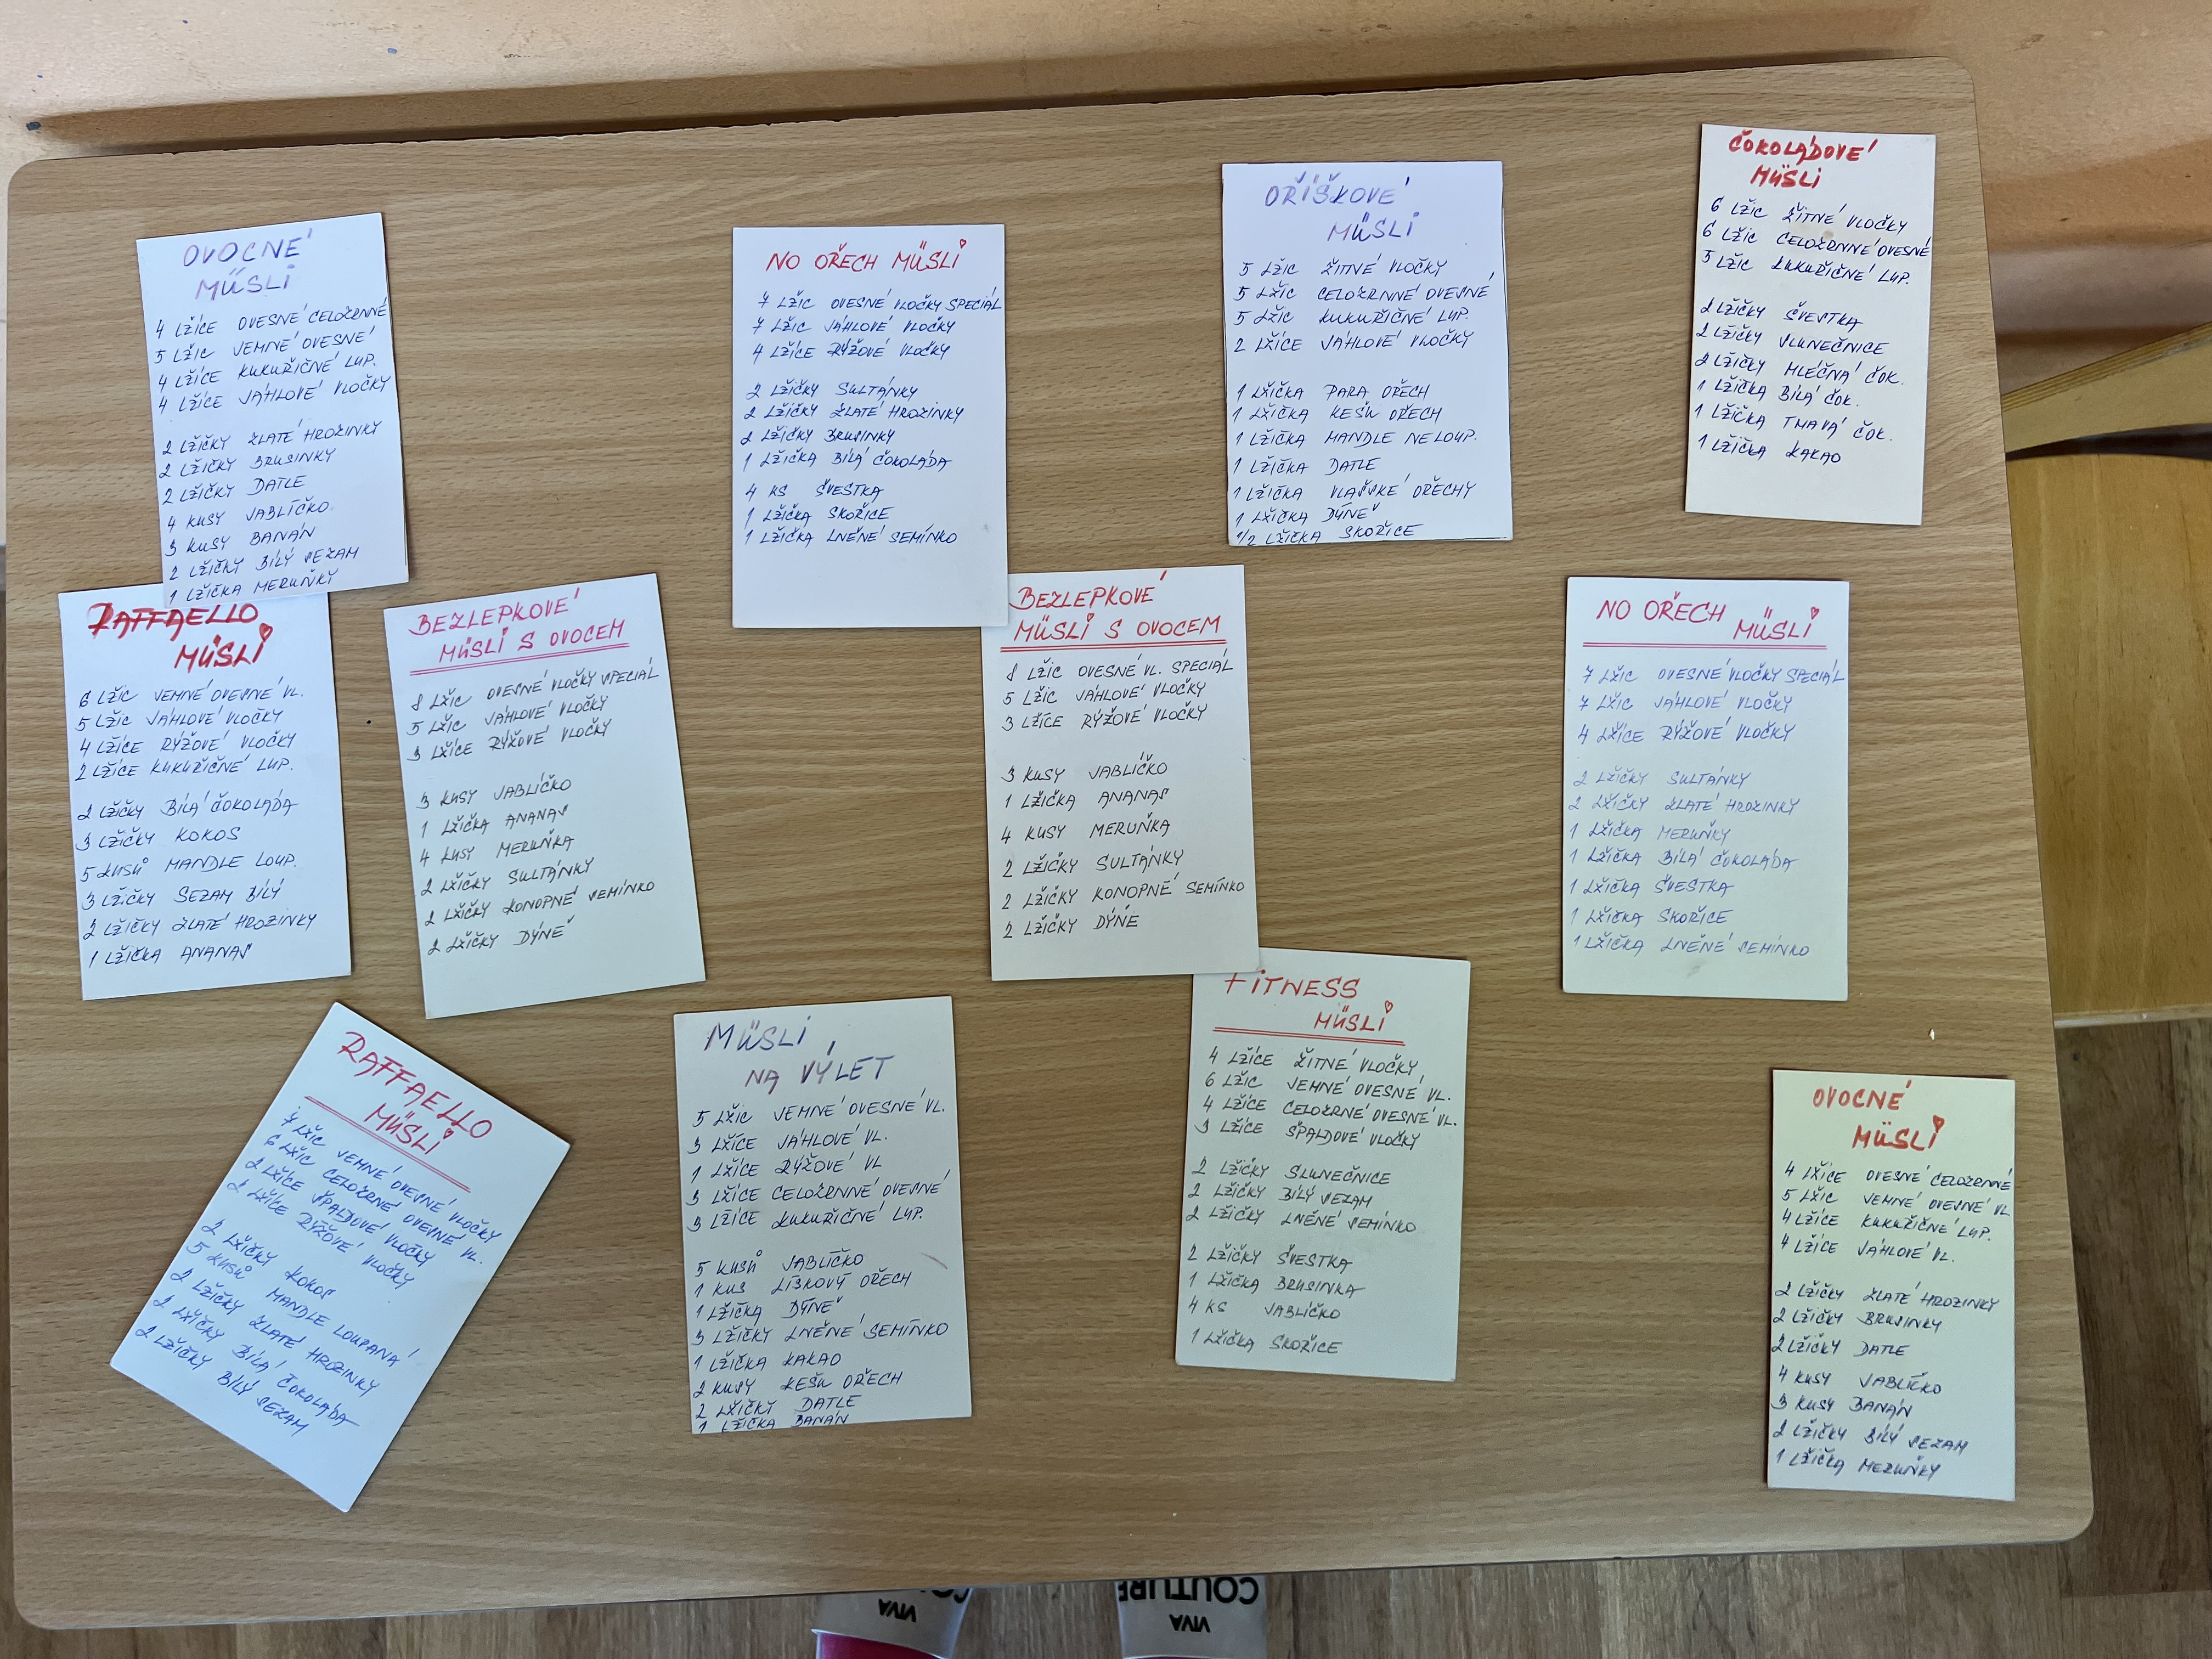 OVOCNÉ
MÜSLi
4 LŽÍCE OVESNÉ CELOZRNNÉ
5 LŽIC JEMNÉ OVESNÉ
4 LŽÍCE KUKUŘIČNÉ LUP.
4 LŽÍCE JÁHLOVÉ VLOČKY
2 LŽIČKY ZLATÉ HROZINKY
2 LŽIČKY BRUSINKY
2 LŽIČKY DATLE
4 KUSY JABLÍČKO
3 KUSY BANÁN
2 LŽIČKY BÍLÝ SEZAM
1 LŽIČKA MERUŇKY
NO OŘECH MÜSLi
7 LŽIC OVESNÉ VLOČKY SPECIÁL
7 LŽIC JÁHLOVÉ VLOČKY
4 LŽÍCE RÝŽOVÉ VLOČKY
2 LŽIČKY SULTÁNKY
2 LŽIČKY ZLATÉ HROZINKY
2 LŽIČKY BRUSINKY
1 LŽIČKA BÍLÁ ČOKOLÁDA
4 KS ŠVESTKA
1 LŽIČKA SKOŘICE
1 LŽIČKA LNĚNÉ SEMÍNKO
OŘÍŠKOVÉ
MÜSLi
5 LŽIC ŽITNÉ VLOČKY
5 LŽIC CELOZRNNÉ OVESNÉ
5 LŽIC KUKUŘIČNÉ LUP.
2 LŽÍCE JÁHLOVÉ VLOČKY
1 LŽIČKA PARA OŘECH
1 LŽIČKA KEŠU OŘECH
1 LŽIČKA MANDLE NELOUP.
1 LŽIČKA DATLE
1 LŽIČKA VLAŠSKÉ OŘECHY
1 LŽIČKA DÝNĚ
1/2 LŽIČKA SKOŘICE
ČOKOLÁDOVÉ
MÜSLi
6 LŽIC ŽITNÉ VLOČKY
6 LŽIC CELOZRNNÉ OVESNÉ
5 LŽIC KUKUŘIČNÉ LUP.
2 LŽIČKY ŠVESTKA
2 LŽIČKY SLUNEČNICE
2 LŽIČKY MLÉČNÁ ČOK.
1 LŽIČKA BÍLÁ ČOK.
1 LŽIČKA TMAVÁ ČOK.
1 LŽIČKA KAKAO
RAFFAELLO
MÜSLi
6 LŽIC JEMNÉ OVESNÉ VL.
5 LŽIC JÁHLOVÉ VLOČKY
4 LŽÍCE RÝŽOVÉ VLOČKY
2 LŽÍCE KUKUŘIČNÉ LUP.
2 LŽIČKY BÍLÁ ČOKOLÁDA
3 LŽIČKY KOKOS
5 KUSŮ MANDLE LOUP.
3 LŽIČKY SEZAM BÍLÝ
2 LŽIČKY ZLATÉ HROZINKY
1 LŽIČKA ANANAS
BEZLEPKOVÉ
MÜSLi S OVOCEM
8 LŽIC OVESNÉ VLOČKY SPECIÁL
5 LŽIC JÁHLOVÉ VLOČKY
3 LŽÍCE RÝŽOVÉ VLOČKY
3 KUSY JABLÍČKO
1 LŽIČKA ANANAS
4 KUSY MERUŇKA
2 LŽIČKY SULTÁNKY
2 LŽIČKY KONOPNÉ SEMÍNKO
2 LŽIČKY DÝNĚ
BEZLEPKOVÉ
MÜSLi S OVOCEM
8 LŽIC OVESNÉ VL. SPECIÁL
5 LŽIC JÁHLOVÉ VLOČKY
3 LŽÍCE RÝŽOVÉ VLOČKY
3 KUSY JABLÍČKO
1 LŽIČKA ANANAS
4 KUSY MERUŇKA
2 LŽIČKY SULTÁNKY
2 LŽIČKY KONOPNÉ SEMÍNKO
2 LŽIČKY DÝNĚ
NO OŘECH
MÜSLi
7 LŽIC OVESNÉ VLOČKY SPECIÁL
7 LŽIC JÁHLOVÉ VLOČKY
4 LŽÍCE RÝŽOVÉ VLOČKY
2 LŽIČKY SULTÁNKY
2 LŽIČKY ZLATÉ HROZINKY
1 LŽIČKA MERUŇKY
1 LŽIČKA BÍLÁ ČOKOLÁDA
1 LŽIČKA ŠVESTKA
1 LŽIČKA SKOŘICE
1 LŽIČKA LNĚNÉ SEMÍNKO
RAFFAELLO
MÜSLi
7 LŽIC JEMNÉ OVESNÉ VLOČKY
6 LŽIC CELOZRNÉ OVESNÉ VL.
2 LŽÍCE ŠPALDOVÉ VLOČKY
2 LŽÍCE RÝŽOVÉ VLOČKY
2 LŽIČKY KOKOS
5 KUSŮ MANDLE LOUPANÁ
2 LŽIČKY ZLATÉ HROZINKY
2 LŽIČKY BÍLÁ ČOKOLÁDA
2 LŽIČKY BÍLÝ SEZAM
MÜSLi
NA VÝLET
5 LŽIC JEMNÉ OVESNÉ VL.
3 LŽÍCE JÁHLOVÉ VL.
1 LŽÍCE RÝŽOVÉ VL
3 LŽÍCE CELOZRNNÉ OVESNÉ
3 LŽÍCE KUKUŘIČNÉ LUP.
5 KUSŮ JABLÍČKO
1 KUS LÍSKOVÝ OŘECH
1 LŽIČKA DÝNĚ
3 LŽIČKY LNĚNÉ SEMÍNKO
1 LŽIČKA KAKAO
2 KUSY KEŠU OŘECH
2 LŽIČKY DATLE
1 LŽIČKA BANÁN
FITNESS
MÜSLi
4 LŽÍCE ŽITNÉ VLOČKY
6 LŽIC JEMNÉ OVESNÉ VL.
4 LŽÍCE CELOZRNÉ OVESNÉ VL.
3 LŽÍCE ŠPALDOVÉ VLOČKY
2 LŽIČKY SLUNEČNICE
2 LŽIČKY BÍLÝ SEZAM
2 LŽIČKY LNĚNÉ SEMÍNKO
2 LŽIČKY ŠVESTKA
1 LŽIČKA BRUSINKA
4 KS JABLÍČKO
1 LŽIČKA SKOŘICE
OVOCNÉ
MÜSLi
4 LŽÍCE OVESNÉ CELOZRNNÉ
5 LŽIC JEMNÉ OVESNÉ VL.
4 LŽÍCE KUKUŘIČNÉ LUP.
4 LŽÍCE JÁHLOVÉ VL.
2 LŽIČKY ZLATÉ HROZINKY
2 LŽIČKY BRUSINKY
2 LŽIČKY DATLE
4 KUSY JABLÍČKO
3 KUSY BANÁN
2 LŽIČKY BÍLÝ SEZAM
1 LŽIČKA MERUŇKY
VIVA
VIVA
COUTURE